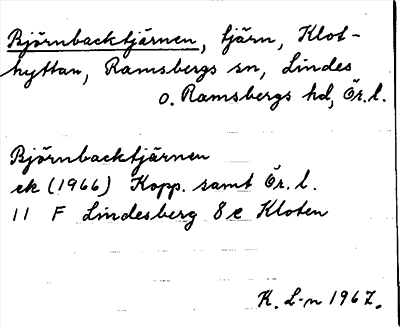 Björnbacktjärnen, tjärn, Klot-
hyttan, Ramsbergs sn, Lindes
o. Ramsbergs hd, Ör. l.
Björnbacktjärnen
ek (1966) Kopp. samt Ör. l.
11 F Lindesberg 8 e Kloten
K. L-n 1967.